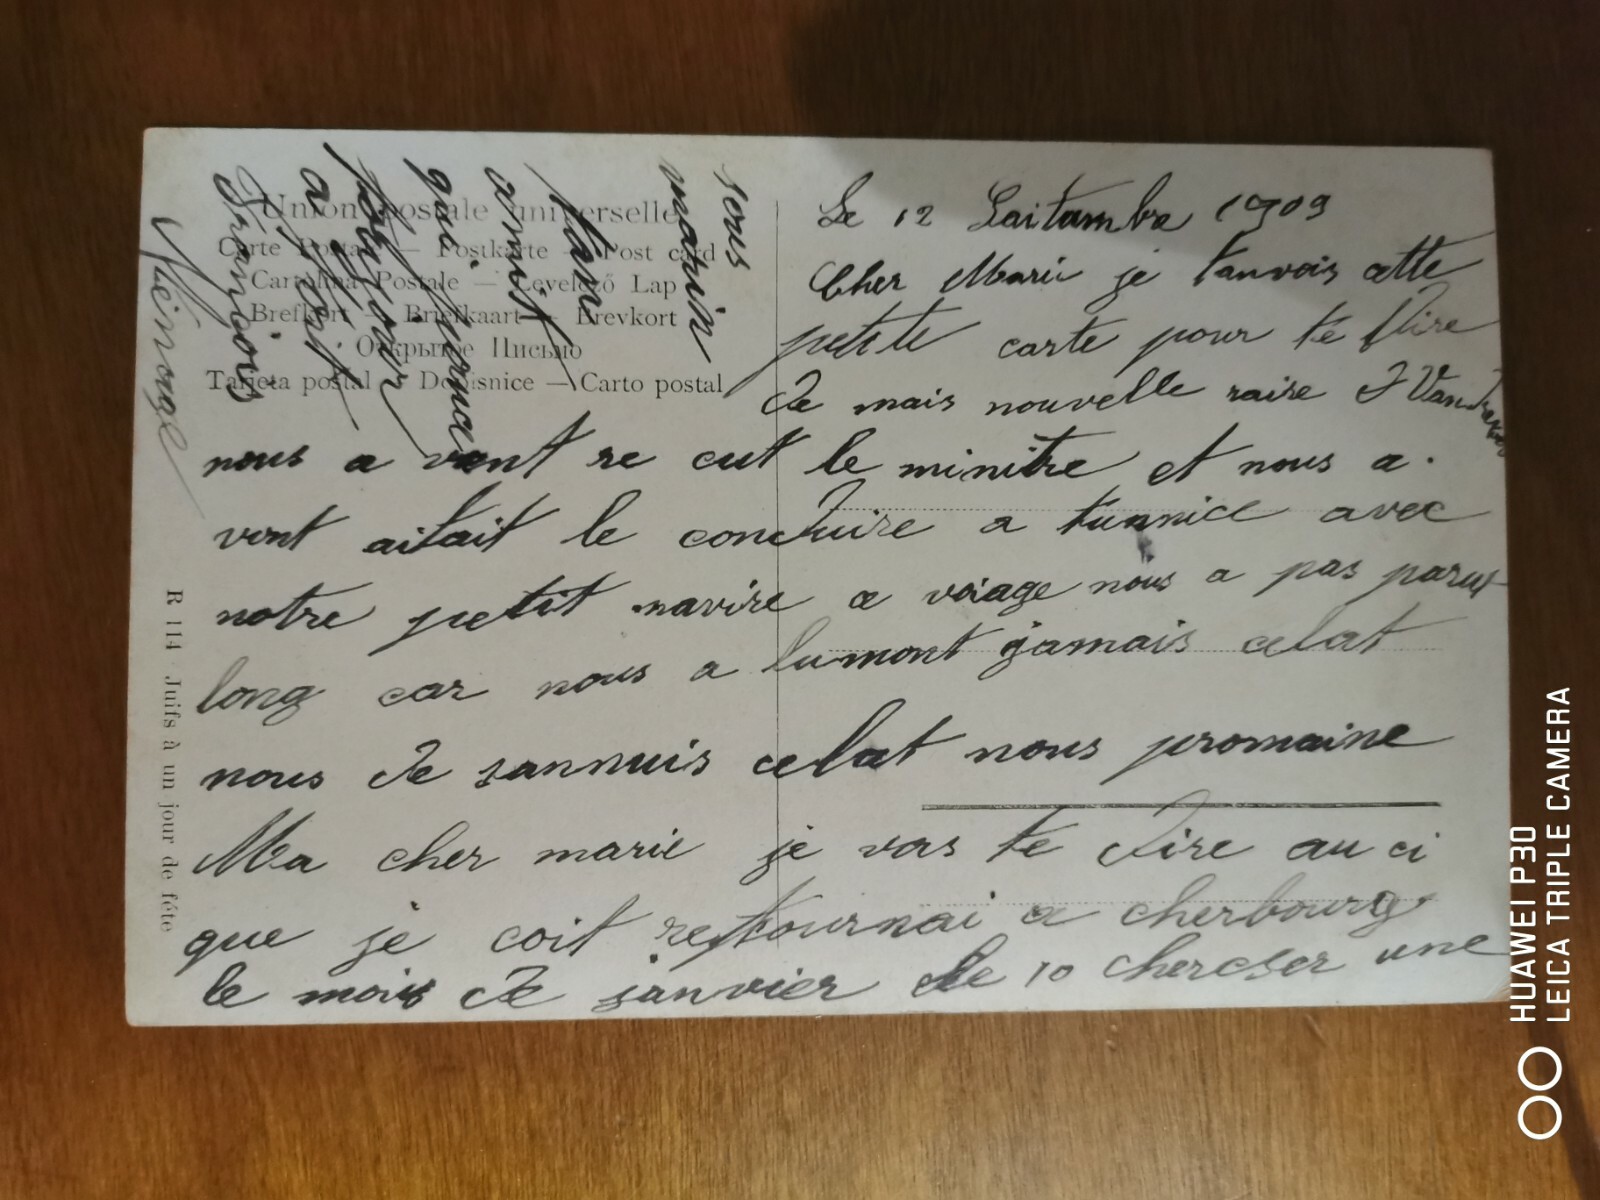 Le 12 Saitambre 1909
Cher Marie je tanvois cette
petite carte pour te dire
de mais nouvelle raire
nous a vont re cut le minitre et nous a.
vont aitait le conduire a tunnice avec
notre petit navire a voiage nous a pas parut
long car nous a lumont jamais celat
nous de sannuis celat nous promaine
Ma cher marie je vas te dire au ci
que je coit retournai a cherbourg
le mois de janvier le 10 chercher une
sous
marin
ton
amit
qui
pour
a
François
Union postale universelle
Carte Postale — Postkarte — Post card
Cartolina Postale — Levelező Lap
Brefkort — Briefkaart — Brevkort
Открытое Письмо
Tarjeta postal — Dopisnice — Carto postal
R 114 Juifs à un jour de fête
HUAWEI P30
LEICA TRIPLE CAMERA